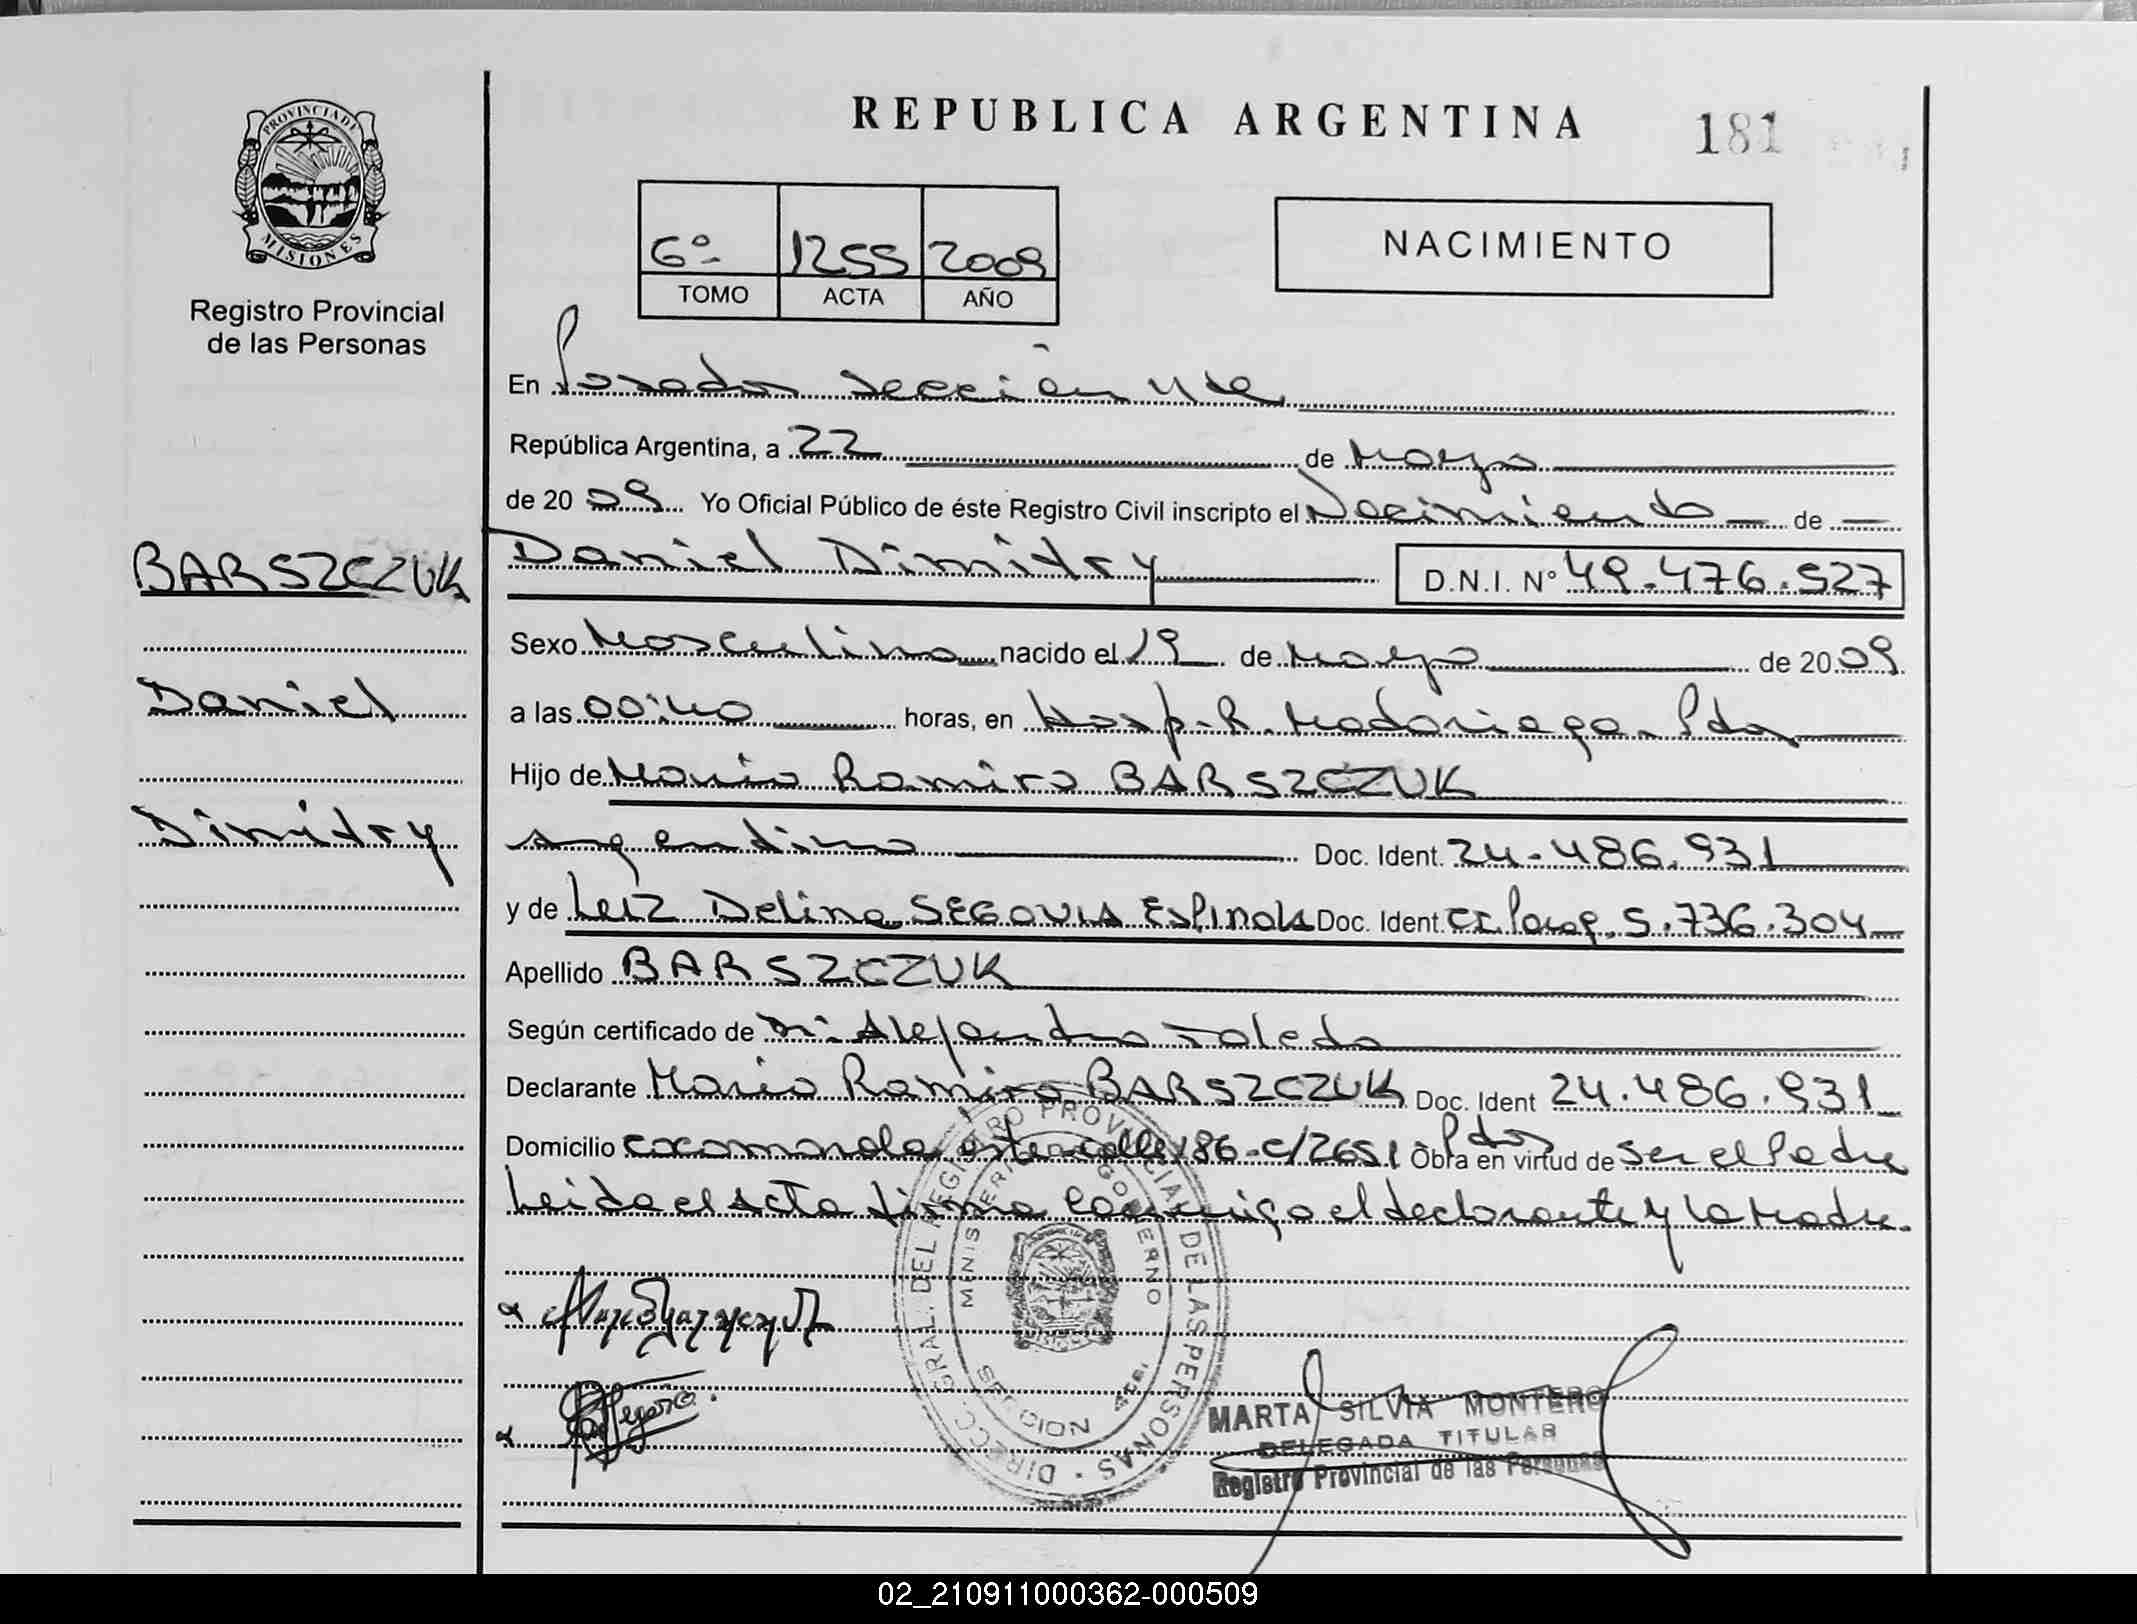 REPUBLICA ARGENTINA
181
PROVINCIA DE
MISIONES
Registro Provincial
de las Personas
6º 1255 2009
TOMO ACTA AÑO
NACIMIENTO
En Posadas sección 4ta
República Argentina, a 22 de Marzo
de 2009 Yo Oficial Público de éste Registro Civil inscripto el Nacimiento de
BARSZCZUK
Daniel
Dimitry
Daniel Dimitry D.N.I. Nº 49.476.527
Sexo Masculino nacido el 19 de Marzo de 2009
a las 00:40 horas, en Hosp. R. Madariaga - Pdas
Hijo de Mario Ramiro BARSZCZUK
argentino Doc. Ident. 24.486.931
y de Luz Delina SEGOVIA ESPINOLA Doc. Ident. CI. Parag. 5.736.304
Apellido BARSZCZUK
Según certificado de Dr: Alejandro Toledo
Declarante Mario Ramiro BARSZCZUK Doc. Ident 24.486.931
Domicilio calle 186 - c/2651 Pdas Obra en virtud de ser el Padre
Leida el Acta firma conmigo el declarante y la Madre.
DIRECC. GRAL. DEL REGISTRO PROVINCIAL DE LAS PERSONAS
MINISTERIO GOBIERNO
MARTA SILVIA MONTERO
DELEGADA TITULAR
Registro Provincial de las Personas
02_210911000362-000509